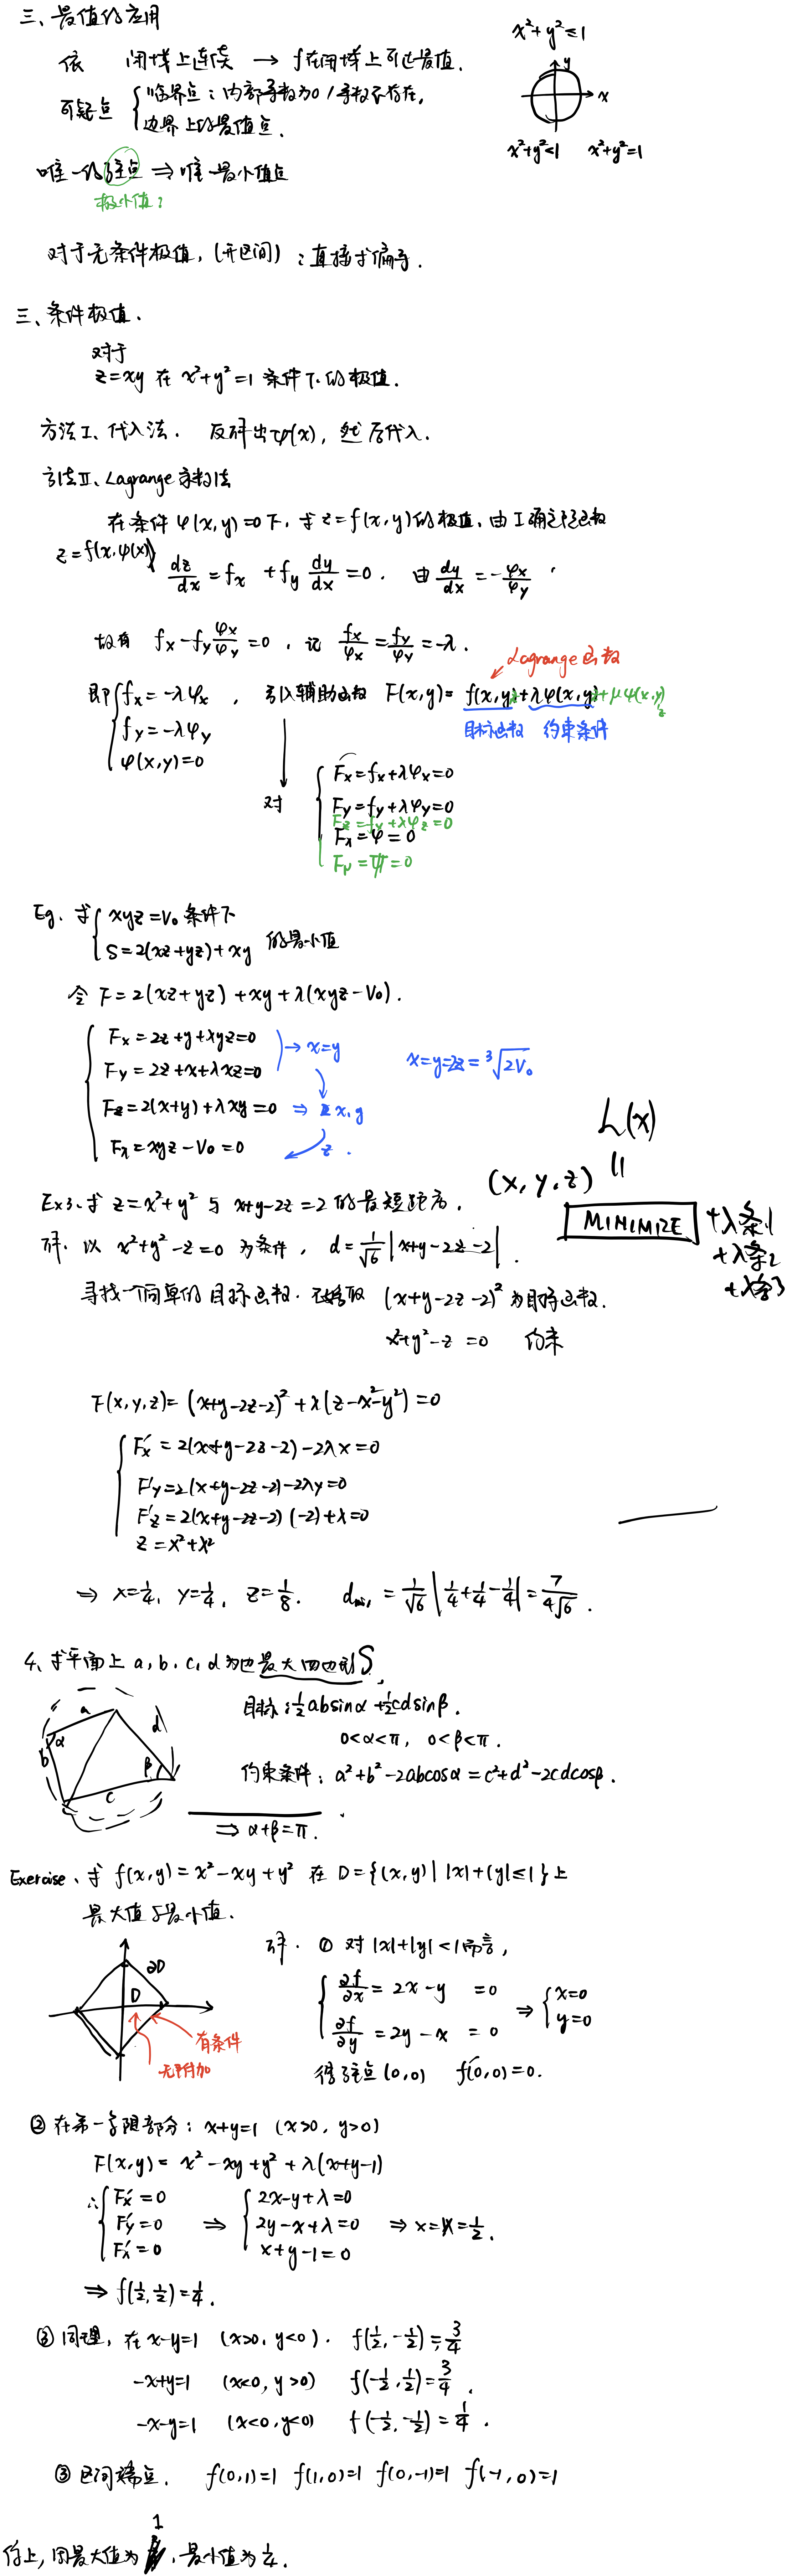 三、最值的应用
x²+y²≤1
依 闭域上连续 → f在闭域上可达最值.
y
x
可疑点 { 临界点:内部导数为0/导数不存在,
边界上的最值点.
x²+y²<1 x²+y²=1
唯一的驻点 ⇒ 唯一最小值点
极小值?
对于无条件极值,(开区间):直接求偏导.
三、条件极值.
对于
z=xy 在 x²+y²=1 条件下的极值.
方法I、代入法. 反解出φ(x), 然后代入.
方法II、Lagrange 乘数法
在条件 φ(x,y)=0下, 求 z=f(x,y)的极值, 由I确定隐函数
z=f(x,φ(x)) dz/dx = f_x + f_y dy/dx = 0. 由 dy/dx = -φ_x/φ_y .
故有 f_x - f_y φ_x/φ_y = 0 , 记 f_x/φ_x = f_y/φ_y = -λ .
Lagrange函数
即 { f_x = -λφ_x , 引入辅助函数 F(x,y)= f(x,y,z)+λφ(x,y,z)+μψ(x,y,z)
f_y = -λφ_y
目标函数 约束条件
φ(x,y)=0
对 { F_x=f_x+λφ_x=0
F_y=f_y+λφ_y=0
F_z=f_y+λφ_z=0
F_λ=φ=0
F_μ=ψ=0
Eg. 求 { xyz=V₀ 条件下
S=2(xz+yz)+xy 的最小值
令 F=2(xz+yz)+xy+λ(xyz-V₀).
{ F_x=2z+y+λyz=0 → x=y
F_y=2z+x+λxz=0
x=y=2z=³√2V₀
F_z=2(x+y)+λxy=0 ⇒ x,y
F_λ=xyz-V₀=0 z .
L(x)
(x,y,z) ||
MINIMIZE +λ条1
+λ条2
+λ条3
Ex3.求 z=x²+y² 与 x+y-2z=2 的最短距离.
解. 以 x²+y²-z=0 为条件, d=1/√6 |x+y-2z-2| .
寻找一个简单的目标函数. 不妨取 (x+y-2z-2)² 为目标函数.
x²+y²-z=0 约束
F(x,y,z)=(x+y-2z-2)²+λ(z-x²-y²)=0
{ F'x=2(x+y-2z-2)-2λx=0
F'y=2(x+y-2z-2)-2λy=0
F'z=2(x+y-2z-2)(-2)+λ=0
z=x²+x²
⇒ x=1/4, y=1/4, z=1/8. d_min = 1/√6 |1/4+1/4-1/4| = 7/4√6 .
4、求平面上 a,b,c,d为边最大四边形S.
a
d
b
α
β
c
目标:1/2 ab sinα+1/2 cd sinβ.
0<α<π, 0<β<π.
约束条件: a²+b²-2abcosα=c²+d²-2cdcosβ.
⇒ α+β=π.
Exercise、求 f(x,y)=x²-xy+y² 在 D={(x,y)| |x|+|y|≤1}上
最大值与最小值.
∂D
D
有条件
无附加
解. ① 对|x|+|y|<1而言,
{ ∂f/∂x=2x-y =0
∂f/∂y=2y-x =0 ⇒ { x=0
y=0
得驻点(0,0) f(0,0)=0.
② 在第一象限部分: x+y=1 (x>0, y>0)
F(x,y)= x²-xy+y²+λ(x+y-1)
∴ { F'x=0
F'y=0
F'λ=0 ⇒ { 2x-y+λ=0
2y-x+λ=0
x+y-1=0 ⇒ x=y=1/2.
⇒ f(1/2,1/2)=1/4.
③ 同理, 在 x-y=1 (x>0, y<0). f(1/2,-1/2)=3/4
-x+y=1 (x<0, y>0) f(-1/2,1/2)=3/4 .
-x-y=1 (x<0, y<0) f(-1/2,-1/2)=1/4 .
③ 区间端点. f(0,1)=1 f(1,0)=1 f(0,-1)=1 f(-1,0)=1
综上, 同最大值为 1 , 最小值为1/4.